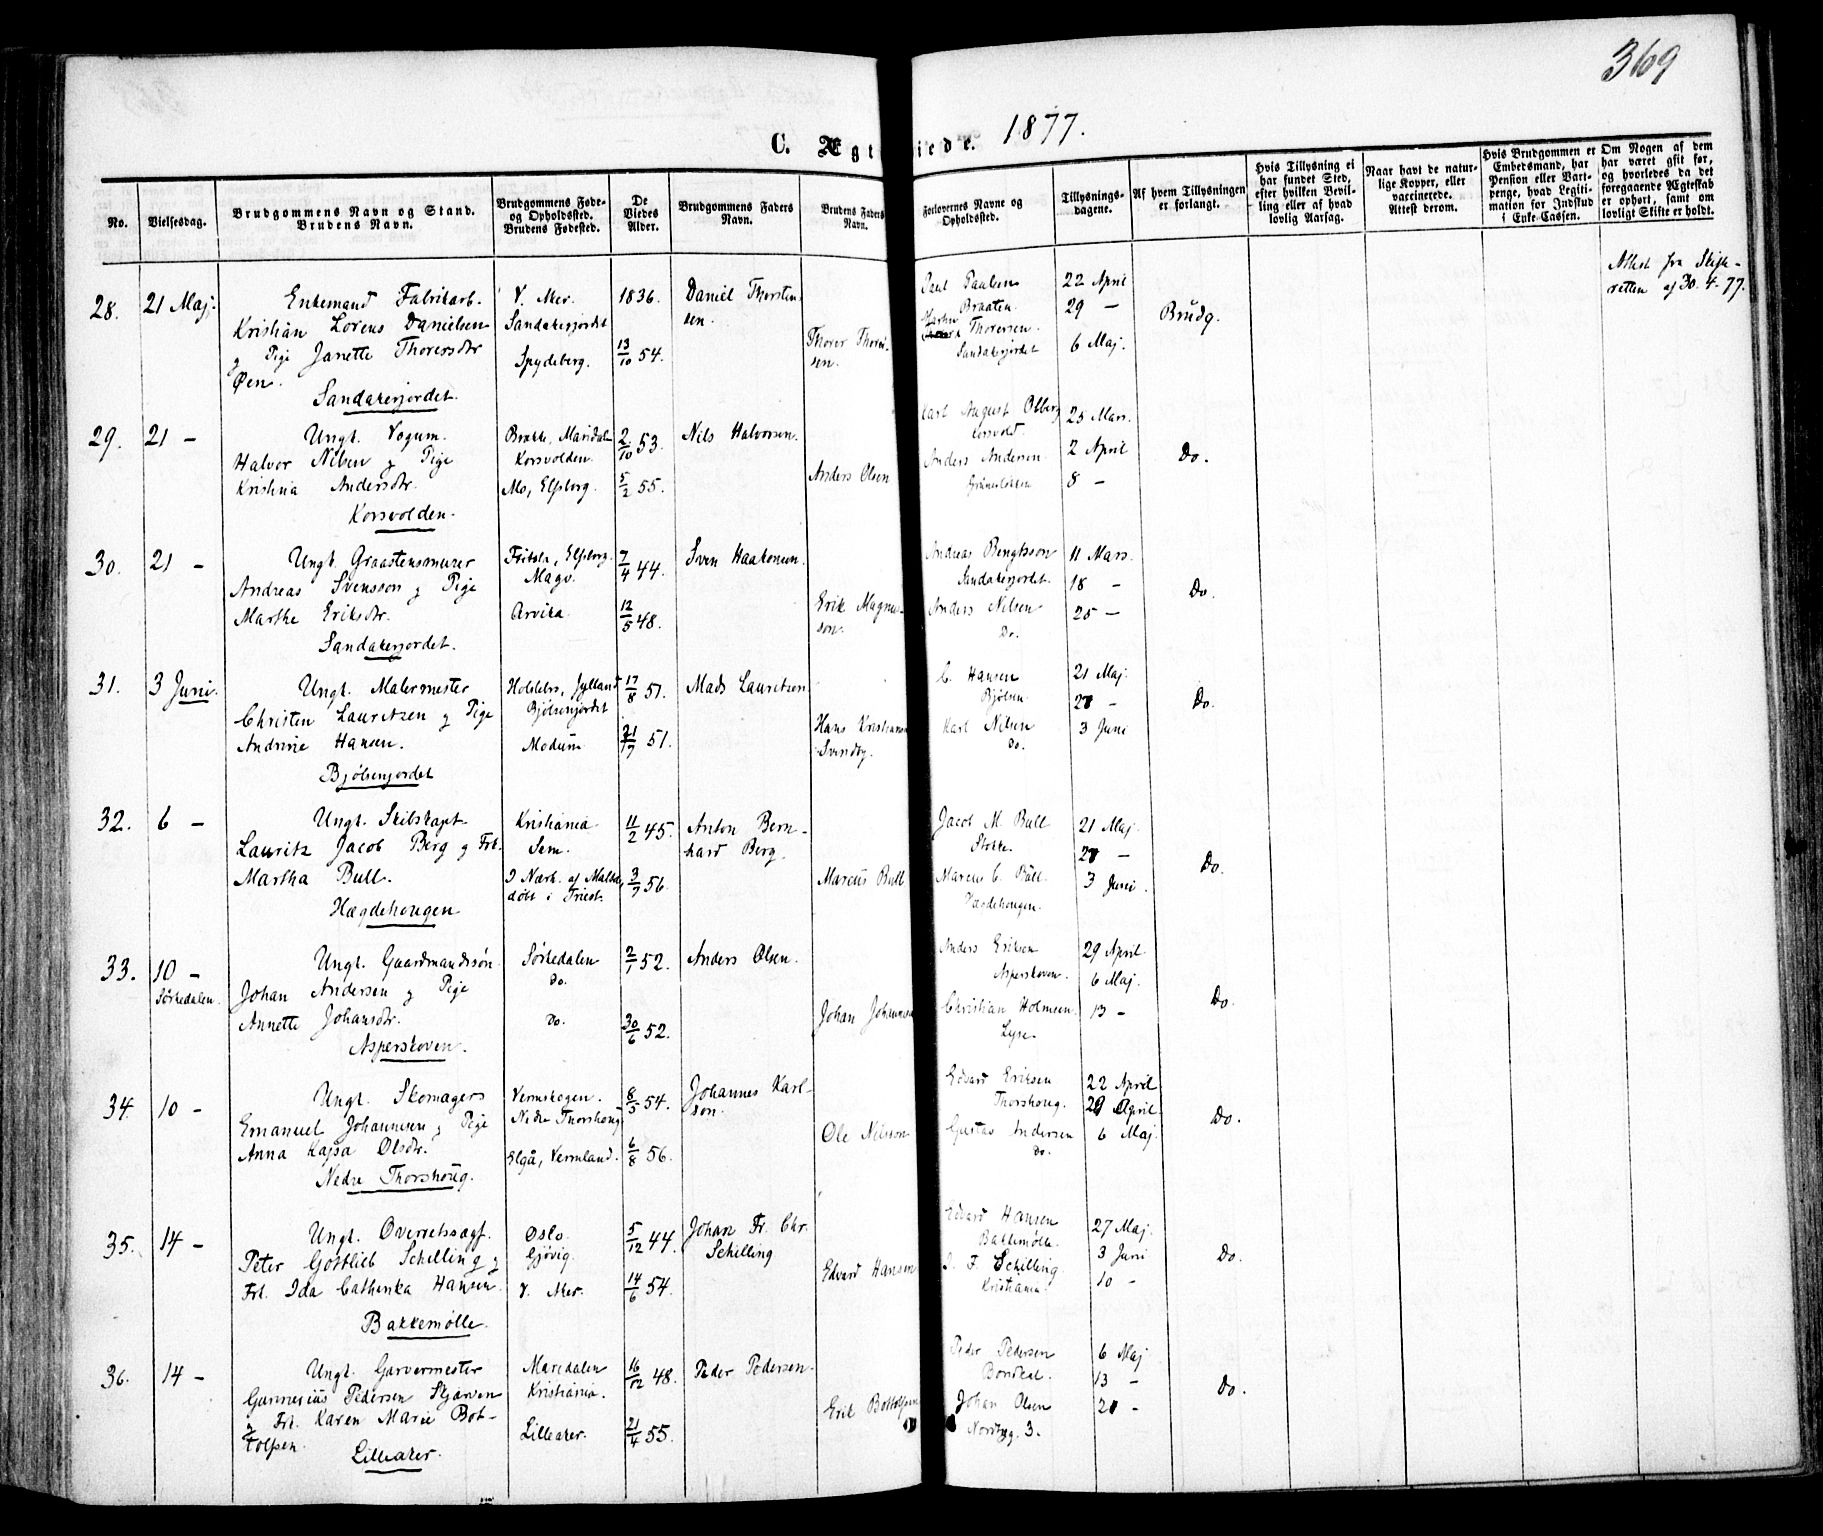 369
C. Ægt iede. 1877.
No.
Vielsesdag.
Brudgommens Navn og Stand.
Brudens Navn.
Brudgommens Føde-
og Opholdssted.
Brudens Fødested.
De
Viedes
Alder.
Brudgommens Faders
Navn.
Brudens Faders
Navn.
Forlovernes Navne og
Opholdssted.
Tillysnings-
dagene.
Af hvem Tillysningen
er forlangt.
Hvis Tillysning ei
har fundet Sted,
efter hvilken Bevil-
ling eller af hvad
lovlig Aarsag.
Naar havt de natur-
lige Kopper, eller
vaccinerede.
Attest derom.
Hvis Brudgommen er
Embedsmand, har
Pension eller Vart-
penge, hvad Legiti-
mation for Indskud
i Enke-Cassen.
Om Nogen af dem
har været gift før,
og hvorledes da det
foregaaende Ægteskab
er ophørt, samt om
lovligt Skifte er holdt.
28. 21 Maj.
Enkemand Fabrikarb.
Kristian Lorens Danielsen
og Pige Janette Thorersdtr
Øen.
Sandakerjordet.
V. Aker.
Sandakerjordet
Spydeberg.
1836.
13/10 54.
Daniel Thorsten
sen.
Thorer Thorer-
sen.
Paul Paulsen
Braaten
Martin
Thorersen.
Sandakerjordet
22 April
29 —
6 Maj.
Brudg.
Attest fra Skifte-
retten af 30.4.77.
29. 21 —
Ungk. Vognm.
Halvor Nilsen og Pige
Kristina Andersdtr.
Korsvolden.
Brekke, Maridalen
Korsvolden.
Mo, Elfsborg.
2/10 53.
5/2 55.
Nils Halvorsen.
Anders Olsen
Karl August Olberg
Korsvold.
Anders Andersen
Grünerløkken
25 Mars.
2 April
8 —
Do.
30. 21 —
Ungk. Graastensmurer
Andreas Svensson og Pige
Marthe Eriksdtr.
Sandakerjordet.
Fritsla, Elfsborg.
Magv.
Arvika.
7/4 44.
12/5 48.
Sven Haakonsen.
Erik Magnus-
son.
Andreas Bengtsson
Sandakerjordet.
Anders Nilsen
Do.
11 Mars.
18 —
25 —
Do.
31. 3 Juni.
Ungk. Malermester
Christen Lauritzen og Pige
Andrine Hansen.
Bjølsenjordet
Holstebro, Jylland
Bjølsenjordet
Modum.
17/8 51.
21/7 51.
Mads Lauritzen
Hans Kristiansen
Svendby.
C. Hansen
Bjølsen
Karl Nilsen
Do.
21 Maj.
27 —
3 Juni
Do.
32. 6 —
Ungk. Skibskapt.
Lauritz Jacob Berg og Frk.
Martha Bull.
Hægdehougen
Kristiania
Sem.
I Nærh. af Malta,
døbt i Triest.
11/2 45.
3/7 56.
Anton Bern-
hard Berg.
Marcus Bull
Jacob M. Bull
Stokke.
Marcus C. Bull.
Hægdehougen.
21 Maj.
27 —
3 Juni.
Do.
33. 10 —
Sørkedalen.
Ungk. Gaardmandssøn
Johan Andersen og Pige
Annette Johansdtr.
Asperskoven.
Sørkedalen
Do.
Do.
2/1 52.
30/6 52.
Anders Olsen.
Johan Johannesen
Anders Eriksen
Asperskoven.
Christian Holmsen
Lyse.
29 April
6 Maj.
13 —
Do.
34. 10 —
Ungk. Skomager
Emanuel Johannesen og Pige
Anna Kajsa Olsdtr.
Nedre Thorshoug.
Vermskogen.
Nedre Thorshoug
Elgå, Vermland.
8/5 54.
6/8 56.
Johannes Karl-
son.
Ole Nilsson
Edvard Eriksen
Thorshoug.
Gustav Andersen
Do.
22 April
29 April
6 Maj.
Do.
35. 14 —
Ungk. Overretssagf.
Peter Gottlieb Schelling og
Frk. Ida Cathinka Hansen.
Bakkemølle.
Oslo.
Gjøvig.
V. Aker.
5/12 44.
14/6 54.
Johan Fr. Chr.
Schilling
Edvard Hansen
Edvard Hansen
Bakkemølle.
F. Schilling
Kristiania.
27 Maj.
3 Juni
10 —
Do.
36. 14 —
Ungk. Garvermester
Gunnerius Pedersen Skjørven
og Frk. Karen Marie Bot-
tolfsen.
Lilleaker.
Maridalen
Kristiania.
Lilleaker.
16/12 48.
21/4 55.
Peder Pedersen.
Erik Bottolfsen
Peder Pedersen
Bondkal.
Johan Olsen
Nordbyg. 3.
6 Maj
13 —
20 —
Do.